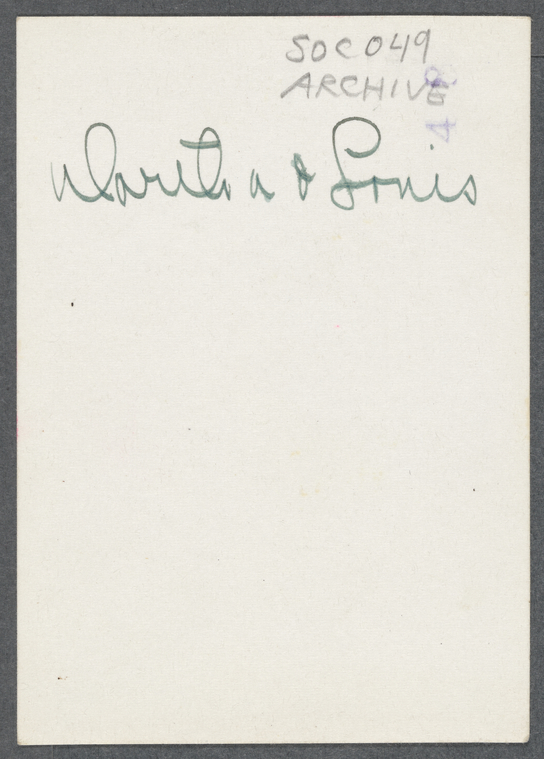 SOC049
ARCHIVE
Martha & Louis